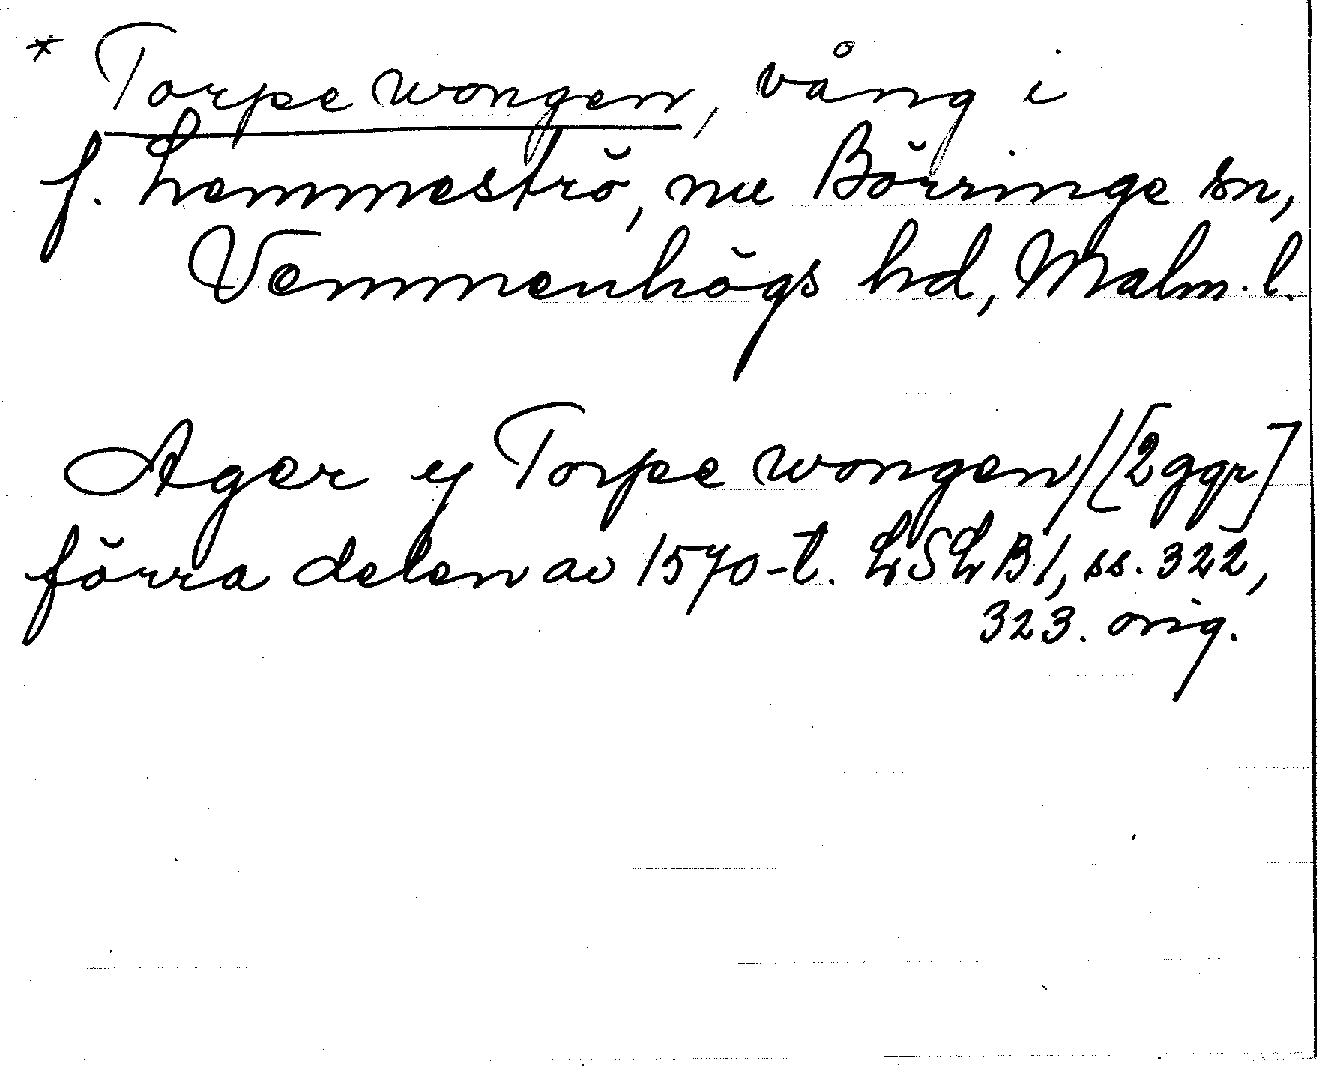 * Torpe wongen, vång i
f. Lemmeströ, nu Börringe sn,
Vemmenhögs hd, Malm. l.
Ager y Torpe wongen/[2 ggr]
förra delen av 1570-t. LSLB1, ss. 322,
323. orig.